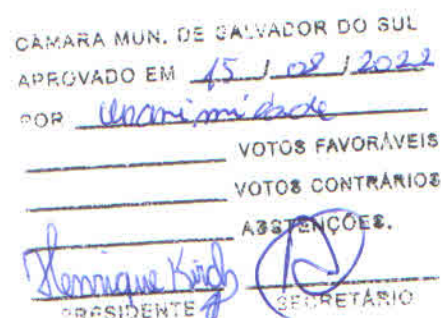 CÂMARA MUN. DE SALVADOR DO SUL
APROVADO EM 15 / 08 / 2022
POR unanimidade
VOTOS FAVORÁVEIS
VOTOS CONTRÁRIOS
ABSTENÇÕES.
Henrique Kirch
PRESIDENTE SECRETÁRIO